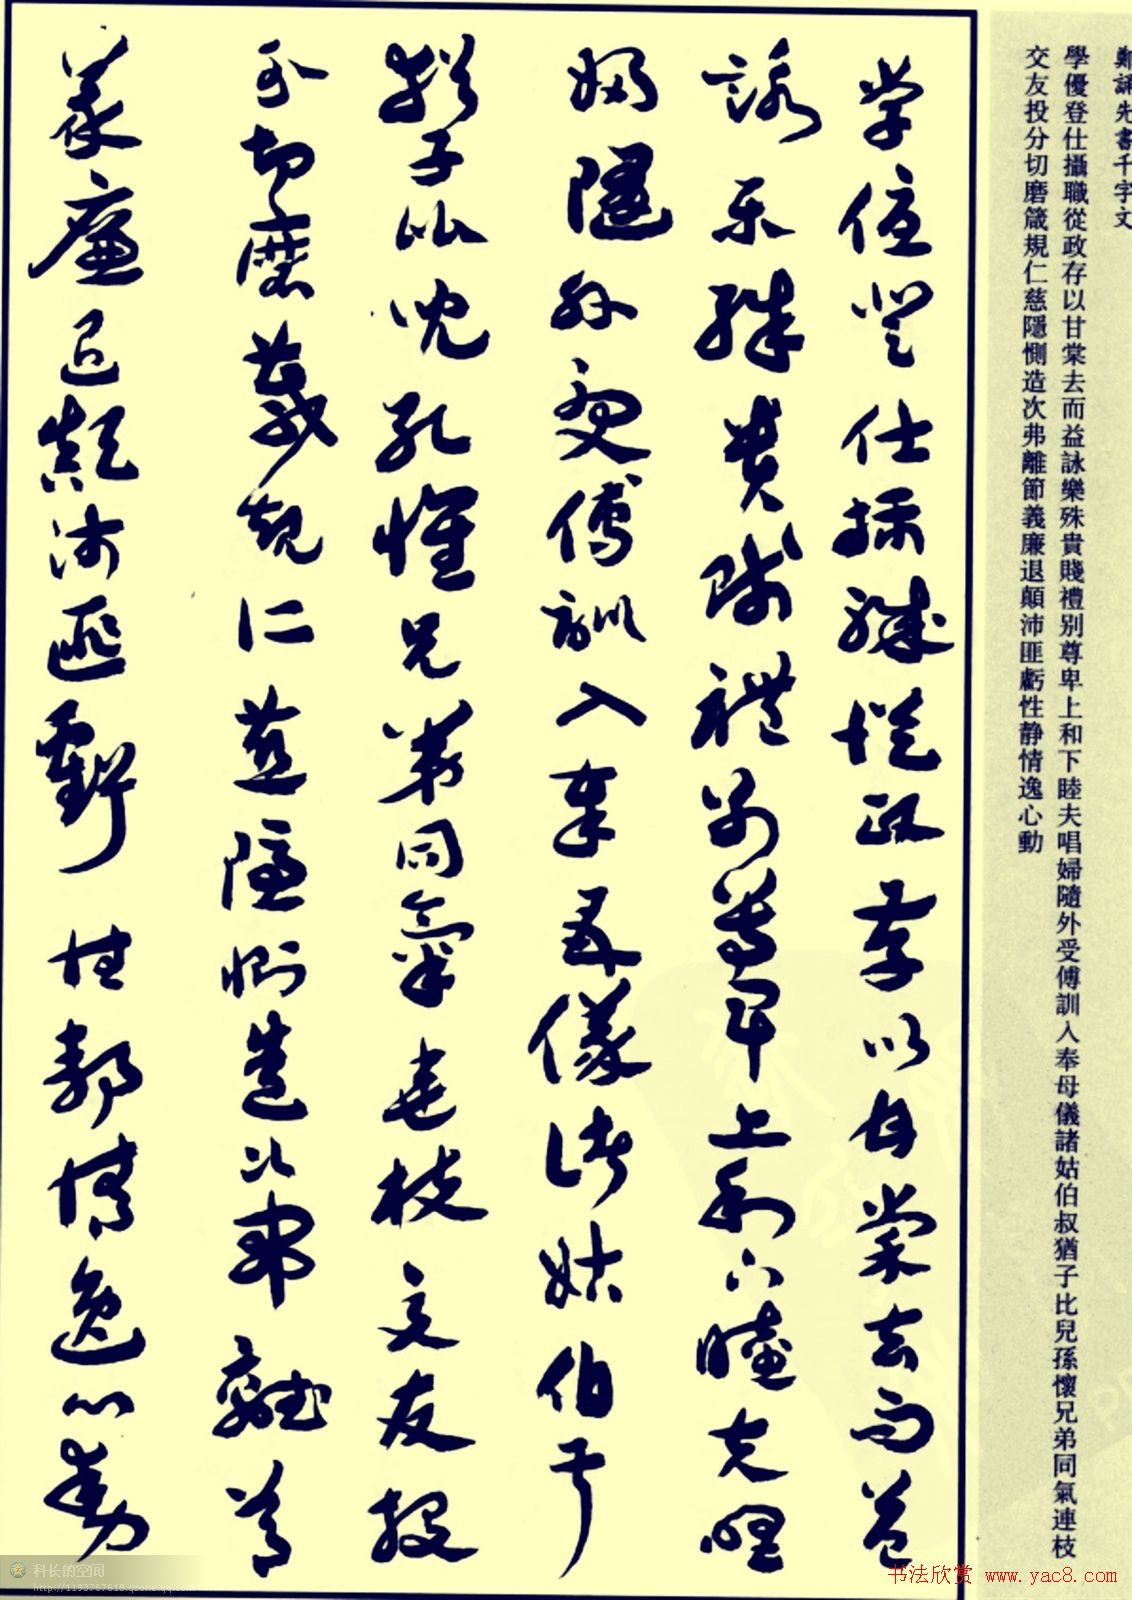 鄭誦先書千字文
學優登仕攝職從政存以甘棠去而益詠樂殊貴賤禮别尊卑上和下睦夫唱婦隨外受傅訓入奉母儀諸姑伯叔猶子比兒孫懷兄弟同氣連枝
交友投分切磨箴規仁慈隱惻造次弗離節義廉退顛沛匪虧性静情逸心動
學優登仕攝職從政存以甘棠去而益
詠樂殊貴賤禮別尊卑上和下睦夫唱
婦隨外受傅訓入奉母儀諸姑伯叔
猶子比兒孔懷兄弟同氣連枝交友投
分切磨箴規仁慈隱惻造次弗離節
義廉退顛沛匪虧性靜情逸心動
科长的空间
http://1193767618.qzone.qq.com
书法欣赏 www.yac8.com